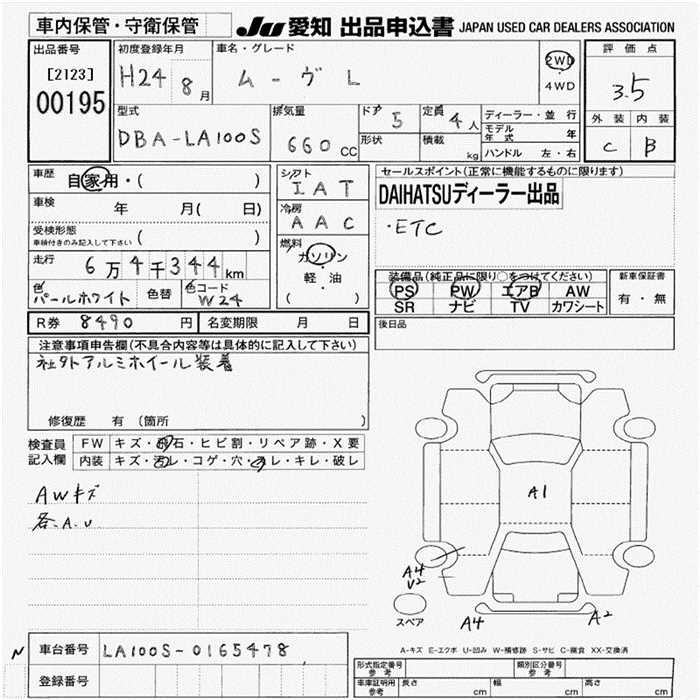 車内保管・守衛保管
JU 愛知 出品申込書 JAPAN USED CAR DEALERS ASSOCIATION
出品番号
[2123]
00195
初度登録年月
H24 8月
車名・グレード
ムーヴ L
2WD
4WD
評価点
3.5
外装 内装
C B
型式
DBA-LA100S
排気量
660 CC
ドア 5
形状
定員 4人
積載 kg
ディーラー・並行
モデル年式 年
ハンドル 左・右
車歴 自家用・( )
車検 年 月( 日)
受検形態
車検付きのみ記入して下さい ( )
走行 6万4千344km
色 パールホワイト 色替 色コード W24
シフト
IAT
冷房
AAC
燃料
ガソリン・
軽・油
( )
セールスポイント(正常に機能するものに限ります)
DAIHATSUディーラー出品
・ETC
装備品(純正品に限り○をつけてください)
PS PW エアB AW
SR ナビ TV カワシート
新車保証書
有・無
R券 8490 円 名変期限 月 日
後日品
注意事項申告欄(不具合内容等は具体的に記入して下さい)
社外アルミホイール装着
修復歴 有 (箇所 )
検査員
記入欄
FW キズ・飛石・ヒビ割・リペア跡・X要
内装 キズ・汚レ・コゲ・穴・スレ・キレ・破レ
AWキズ
各.A.U
A1
A4
V2
スペア
A4
A2
A-キズ E-エクボ U-凹み W-補修跡 S-サビ C-腐食 XX-交換済
N 車台番号 LA100S-0165478
登録番号
形式指定番号
参考
類別区分番号
参考
車庫証明用
参考
長さ cm 幅 cm 高さ cm